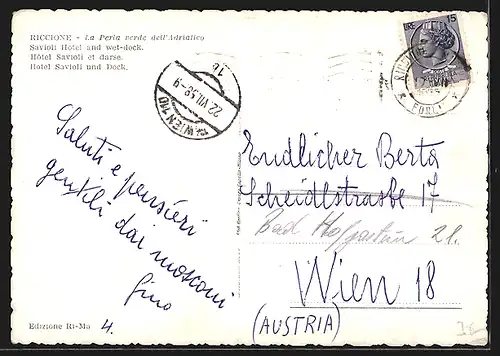 RICCIONE - La Perla verde dell'Adriatico
Savioli Hotel and wet-dock.
Hôtel Savioli et darse.
Hotel Savioli und Dock.
LIRE 15
RICCIONE
FORLI
1b
22.VII.58-9
WIEN 110
Saluti e pensieri
gentili dai mosconi
Gino
Endlicher Berta
Scheidlstrasse 17
Bad Hofgastein 21.
Wien 18
(AUSTRIA)
Edizione Ri-Mo 4.